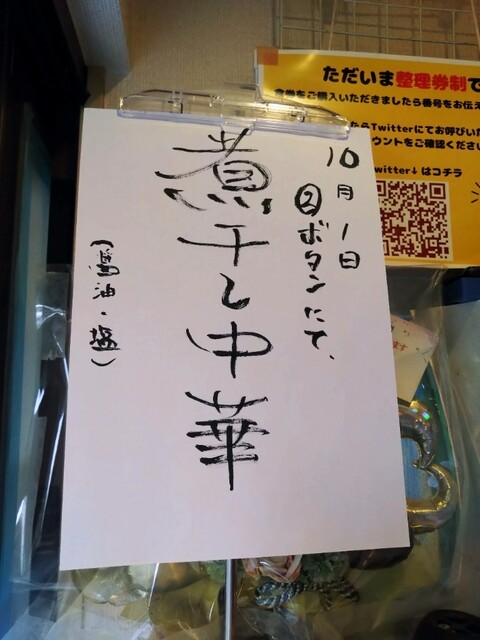 10月1日
②ボタンにて、
煮干し中華
(鶏油・塩)
ただいま整理券制で
食券をご購入いただきましたら番号をお伝え
たらTwitterにてお呼びいた
カウントをご確認ください
Twitter↓はコチラ